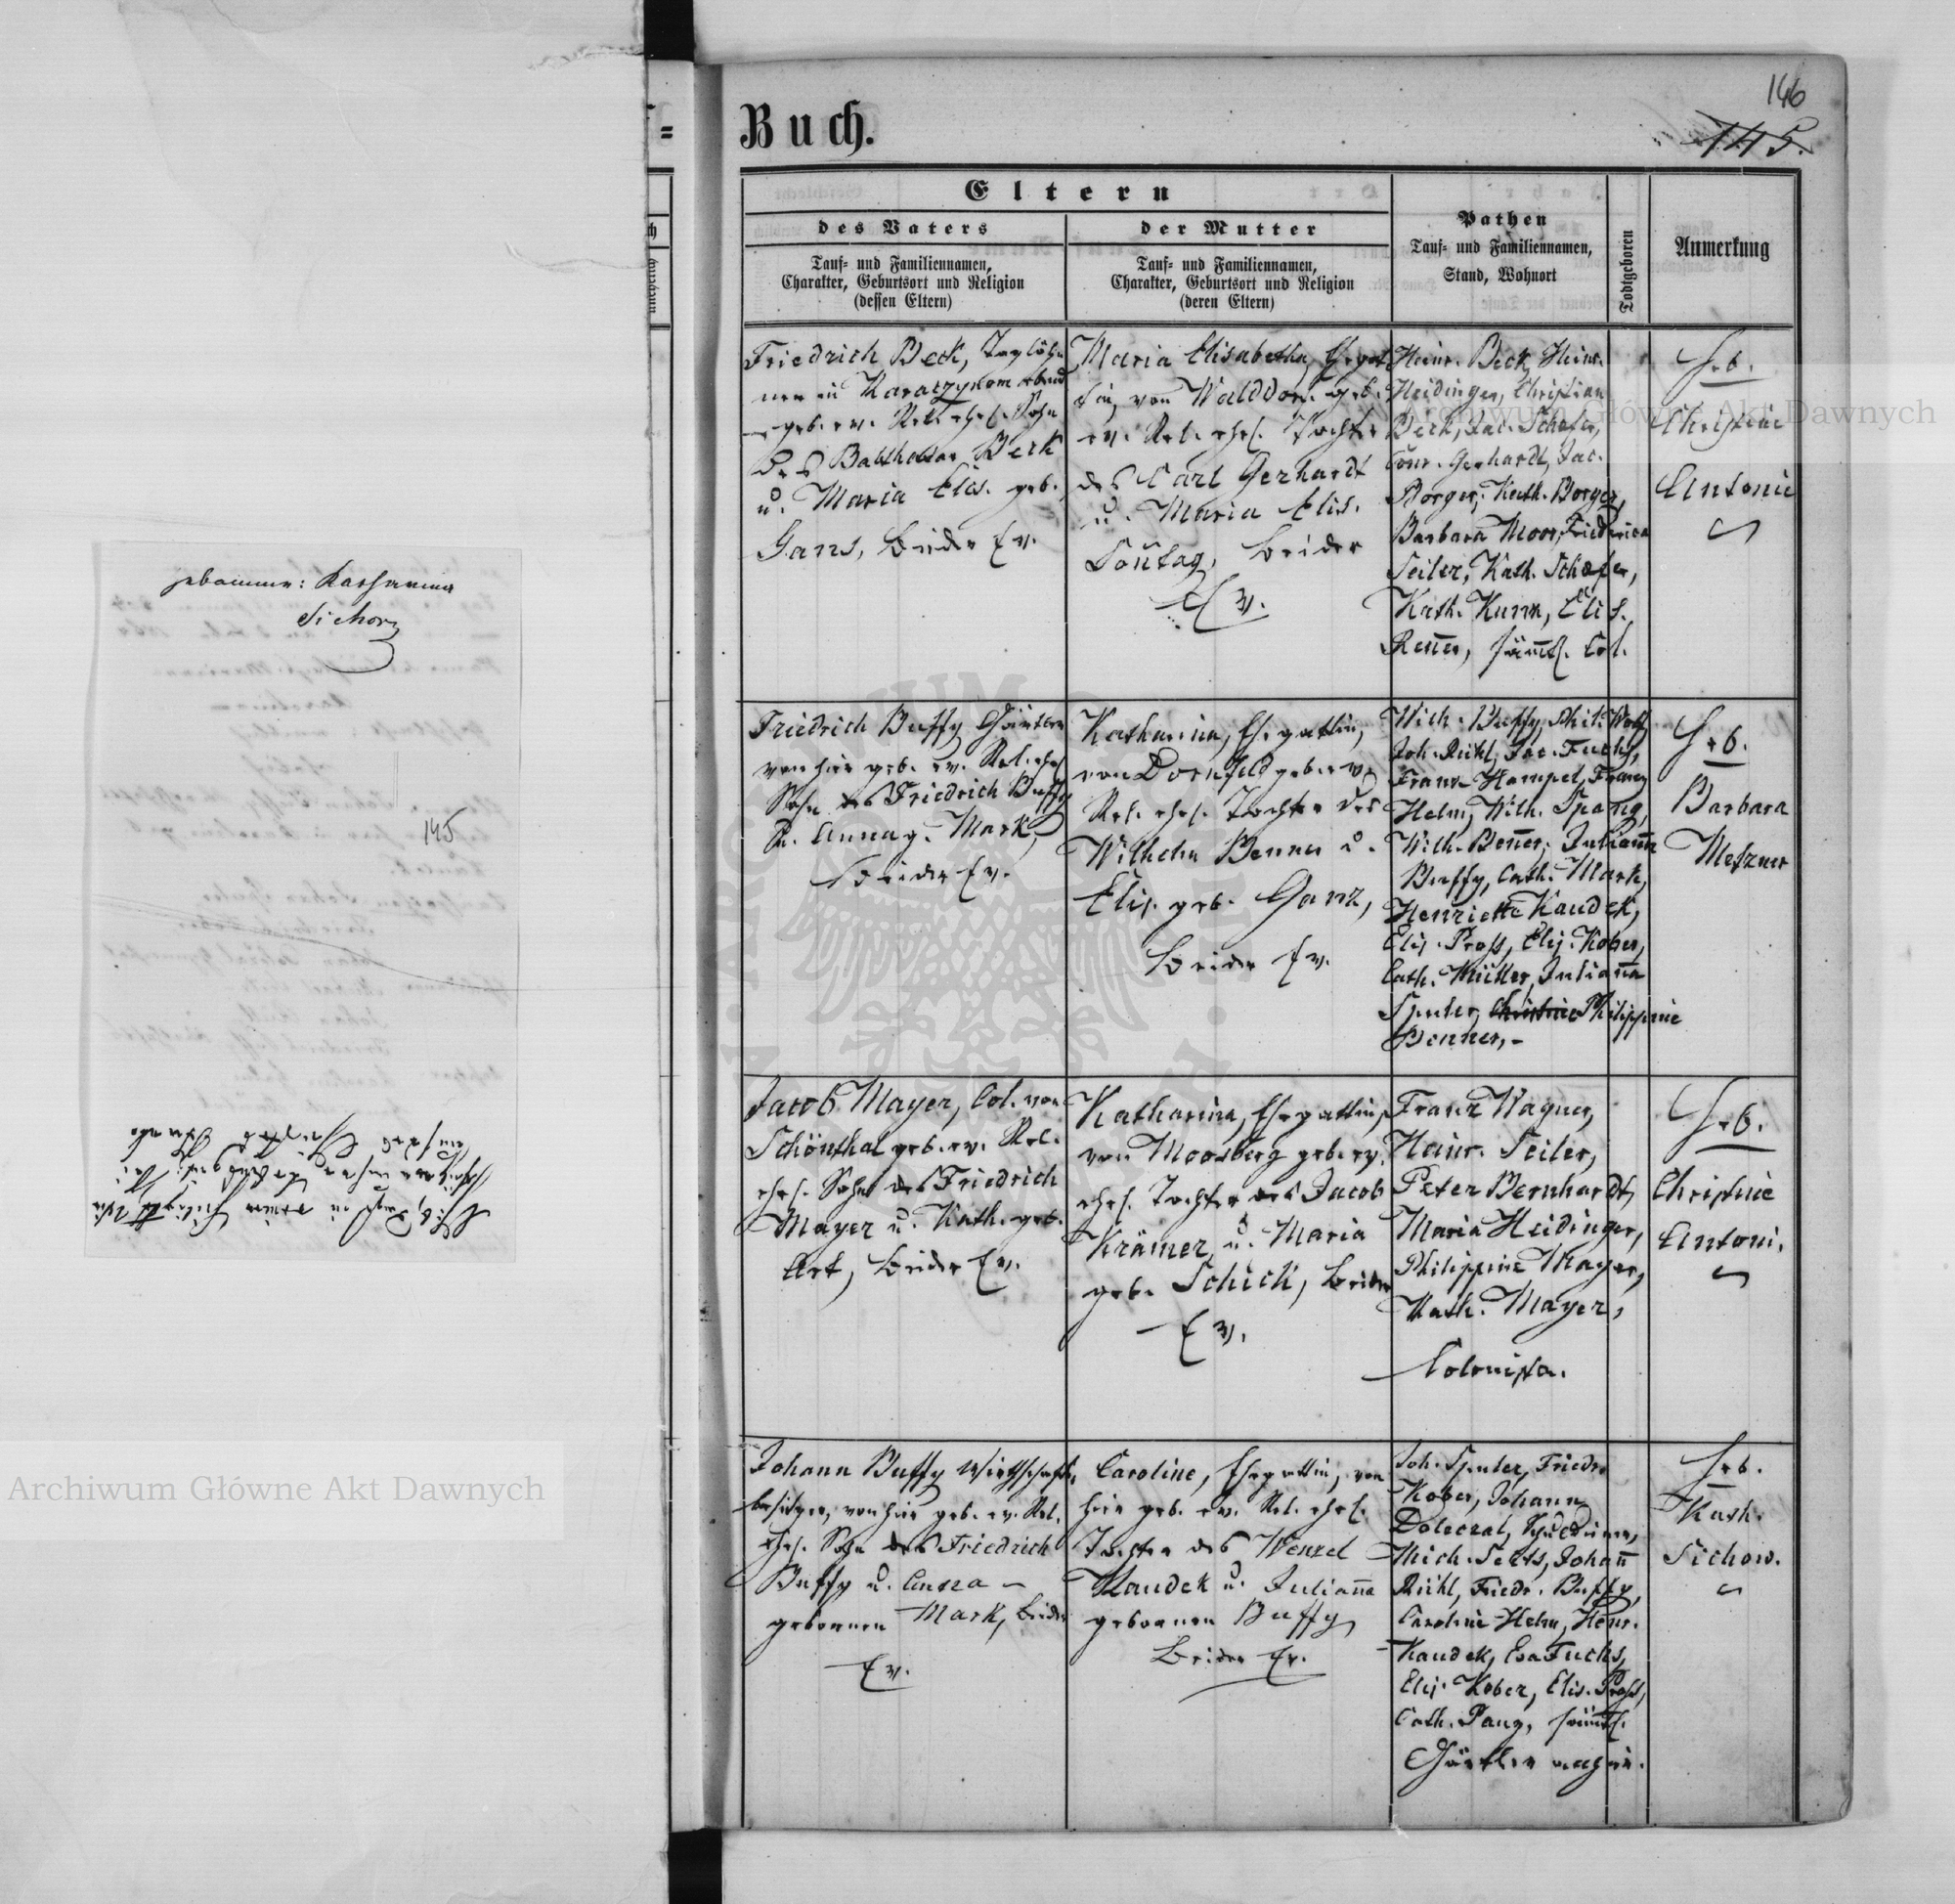 146
145.
Buch.
Eltern
des Vaters
der Mutter
Pathen
Tauf- und Familiennamen,
Stand, Wohnort
Todtgeboren
Anmerkung
Tauf- und Familiennamen,
Charakter, Geburtsort und Religion
(dessen Eltern)
Tauf- und Familiennamen,
Charakter, Geburtsort und Religion
(deren Eltern)
Friedrich Beck, Taglöh-
ner in
geb. ev. Rel. ehel. Sohn
des Balthasar Beck
u. Maria Elis. geb.
Gans, beider Ev.
Maria Elisabetha, Ehegat-
tin, von Walddorf geb.
ev. Rel. ehel. Tochter
des Carl Gerhardt
u. Maria Elis.
Soñtag, beider
Ev.
Heinr. Beck, Heinr.
Heidinger, Christian
Beck, Jac. Schäfer,
Conr. Gerhardt, Jac.
Borger, Kath. Borger,
Barbara Moos, Friederica
Seiler, Kath. Schäfer,
Kath. Kunz, Elis.
Reñer, säm̃tl. Col.
Heb.
Christine
Antonie
Friedrich Buffy Gärtler
von hier geb. ev. Rel. ehel.
Sohn des Friedrich Buffy
u. Anna g. Mark,
beider Ev.
Katharina, Ehegattin,
von Dornfeld geb. ev.
Rel. ehel. Tochter des
Wilhelm Benner u.
Elis. geb. Ganz,
beider Ev.
Mich. Buffy, Phil. Wolf,
Joh. Rükl, Jac. Fuchs,
Franz Hampel, Franz
Helm, Wilh. Spang,
Wilh. Beñer, Juliaña
Buffy, Cath. Mark,
Henriette Kaudek,
Elis. Proß, Elis. Kober,
Cath. Müller, Juliaña
Spuler, Christine Philippine
Benner,-
Heb.
Barbara
Metzner
Jacob Mayer, Col. von
Schönthal geb. ev. Rel.
ehel. Sohn des Friedrich
Mayer u. Kath. geb.
Art, beider Ev.
Katharina, Ehegattin,
von Moosberg geb. ev.
ehel. Tochter des Jacob
Krämer, u. Maria
geb. Schick, beider
Ev.
Franz Wagner,
Heinr. Seiler,
Peter Bernhardt,
Maria Heidinger,
Philippine Mayer,
Kath. Mayer,
Colonisten.
Heb.
Christine
Antoni.
Johann Buffy Wirthschafts-
besitzer, von hier geb. ev. Rel.
ehel. Sohn des Friedrich
Buffy u. Anna
gebornen Mark, beider
Ev.
Caroline, Ehegattin, von
hier geb. ev. Rel. ehel.
Tochter des Wenzel
Kaudek u. Juliaña
gebornen Buffy
beider Ev.
Joh. Spuler, Friedr.
Kober, Johann
Doleczal,
Mich. Johañ
Rükl, Friedr. Buffy,
Caroline Helm, Henr.
Kaudek, Eva Fuchs,
Elis. Kober, Elis. Proß,
Cath. Pang, säm̃tl.
Gärtler
Heb.
Kath.
Sichow.
Hebamme: Katharina
Sichow
145
Archiwum Główne Akt Dawnych
Archiwum Główne Akt Dawnych